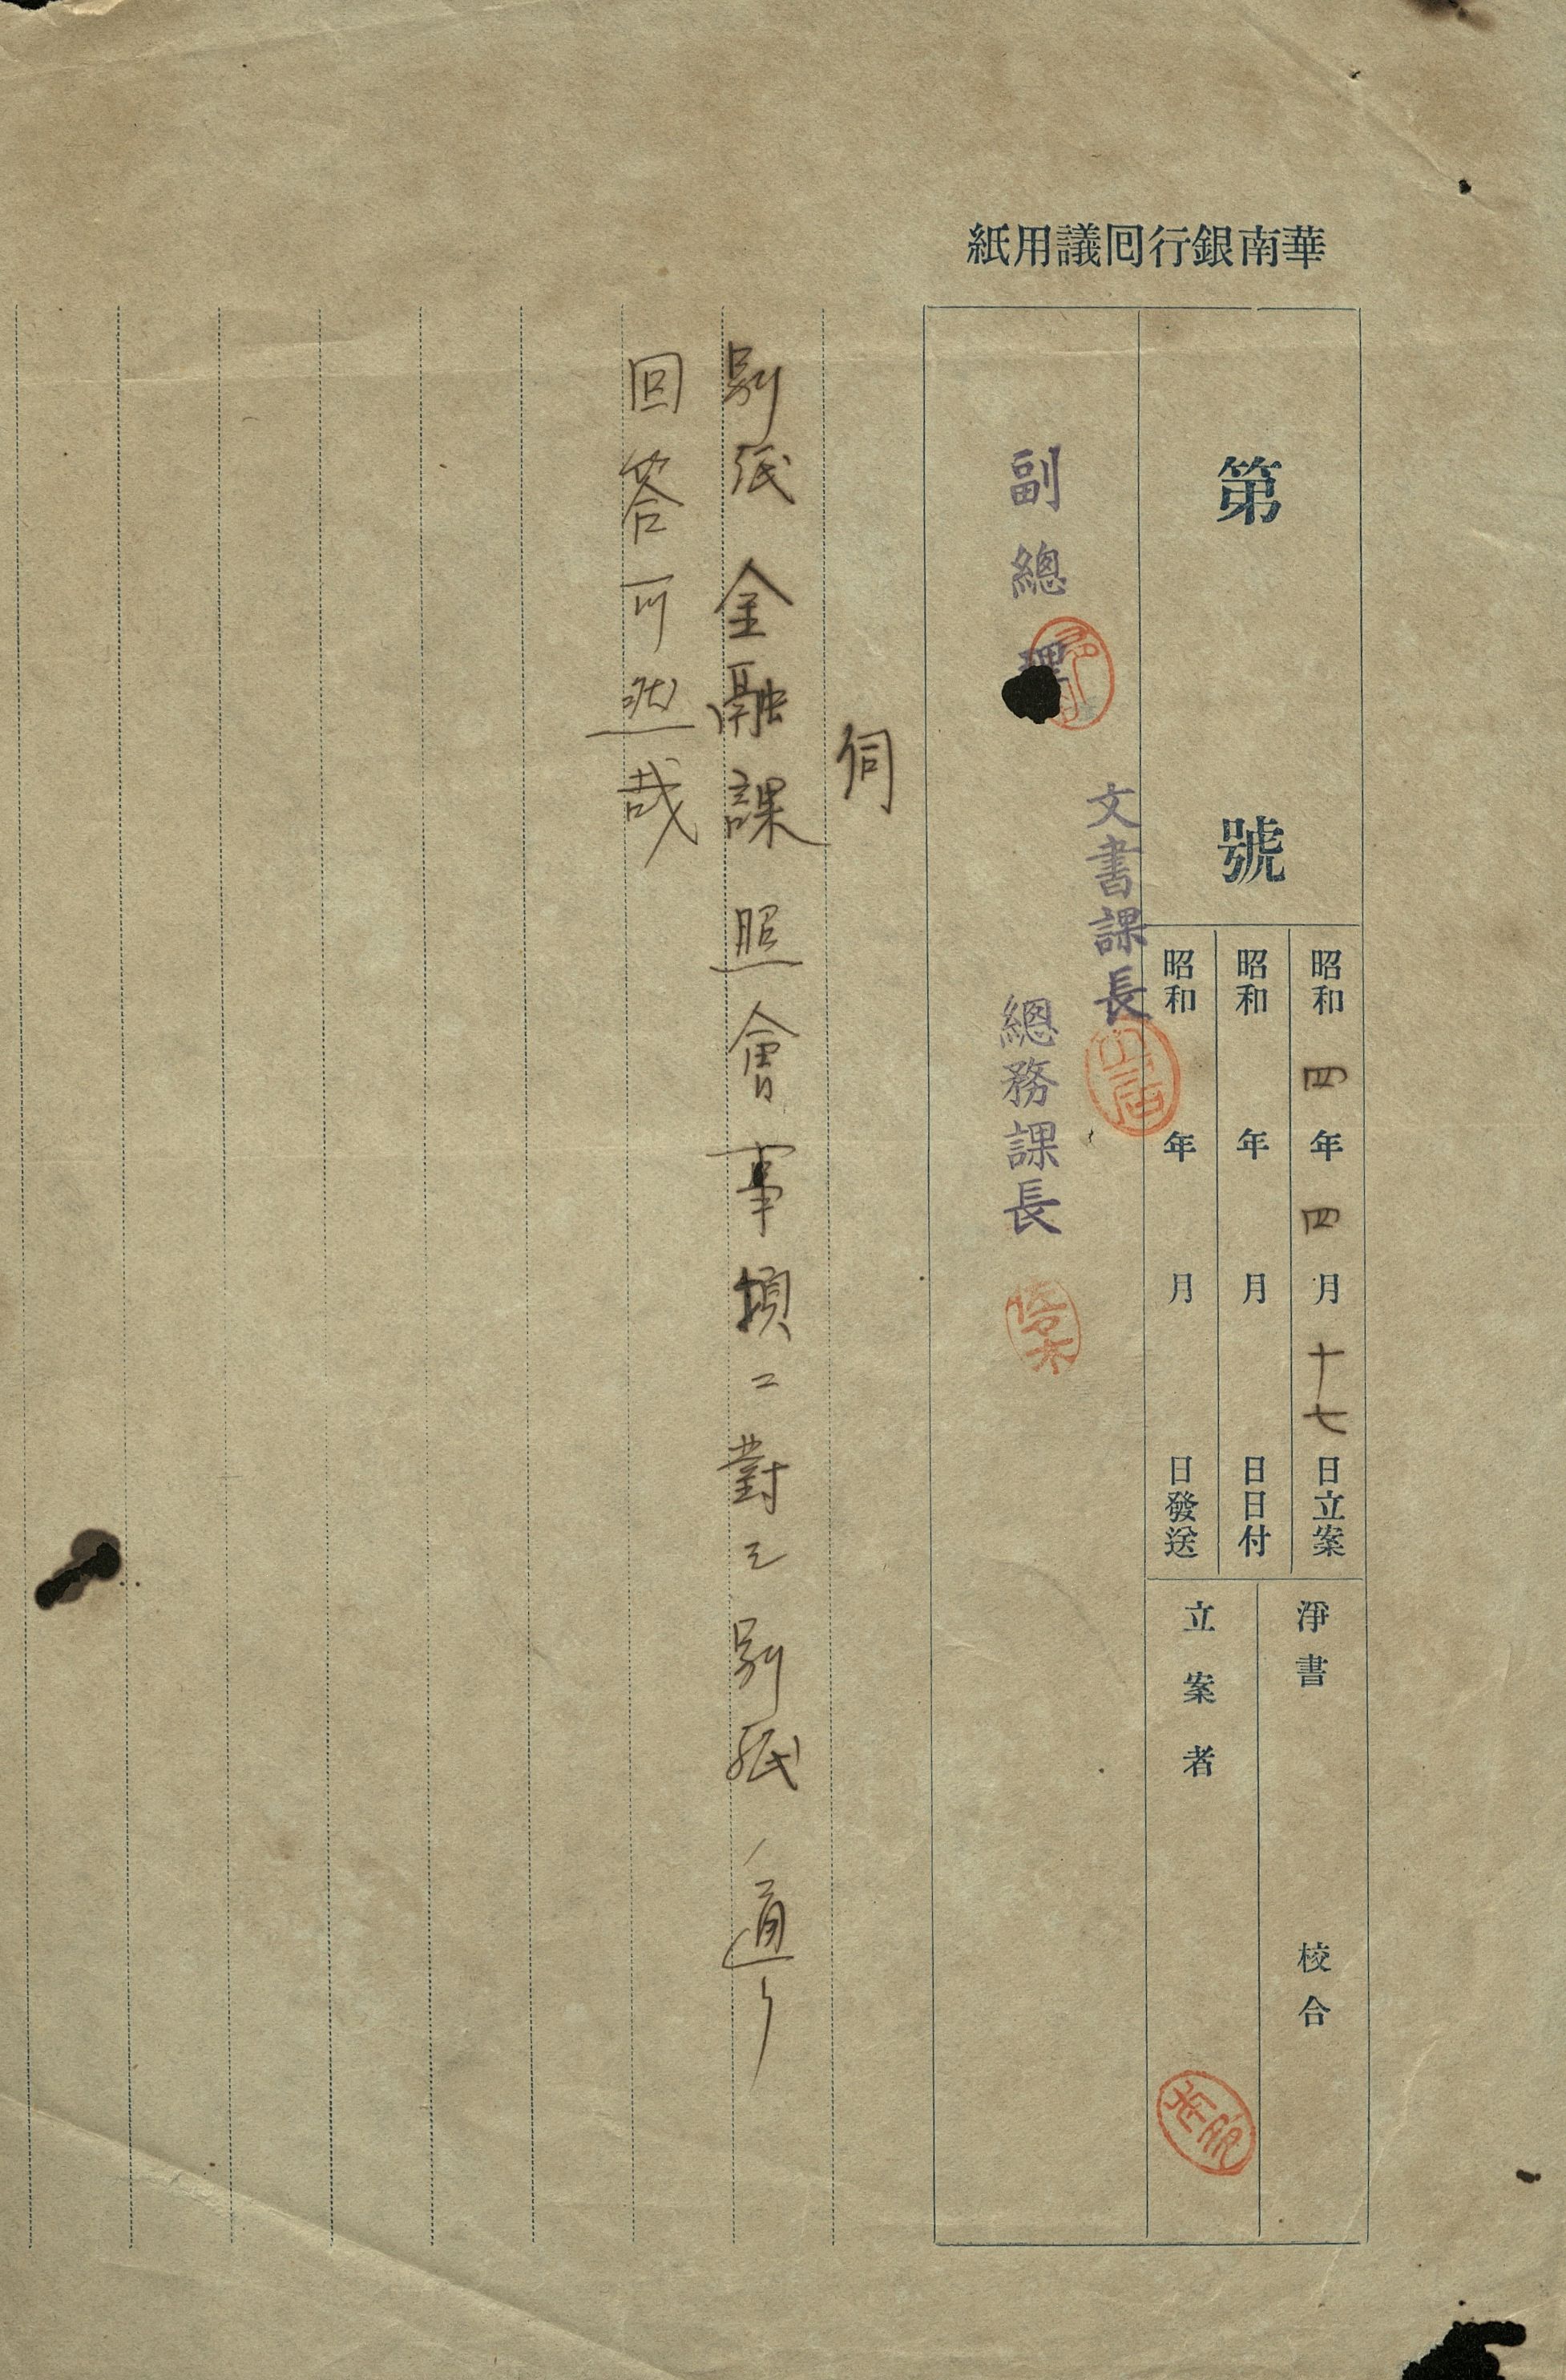 華南銀行囘議用紙
第 號
昭和四年四月十七日立案
昭和 年 月 日日付
昭和 年 月 日發送
淨書 校合
立案者
文書課長
副總理
總務課長
伺
別紙金融課照會事項ニ對シ別紙ノ通リ
回答可然哉